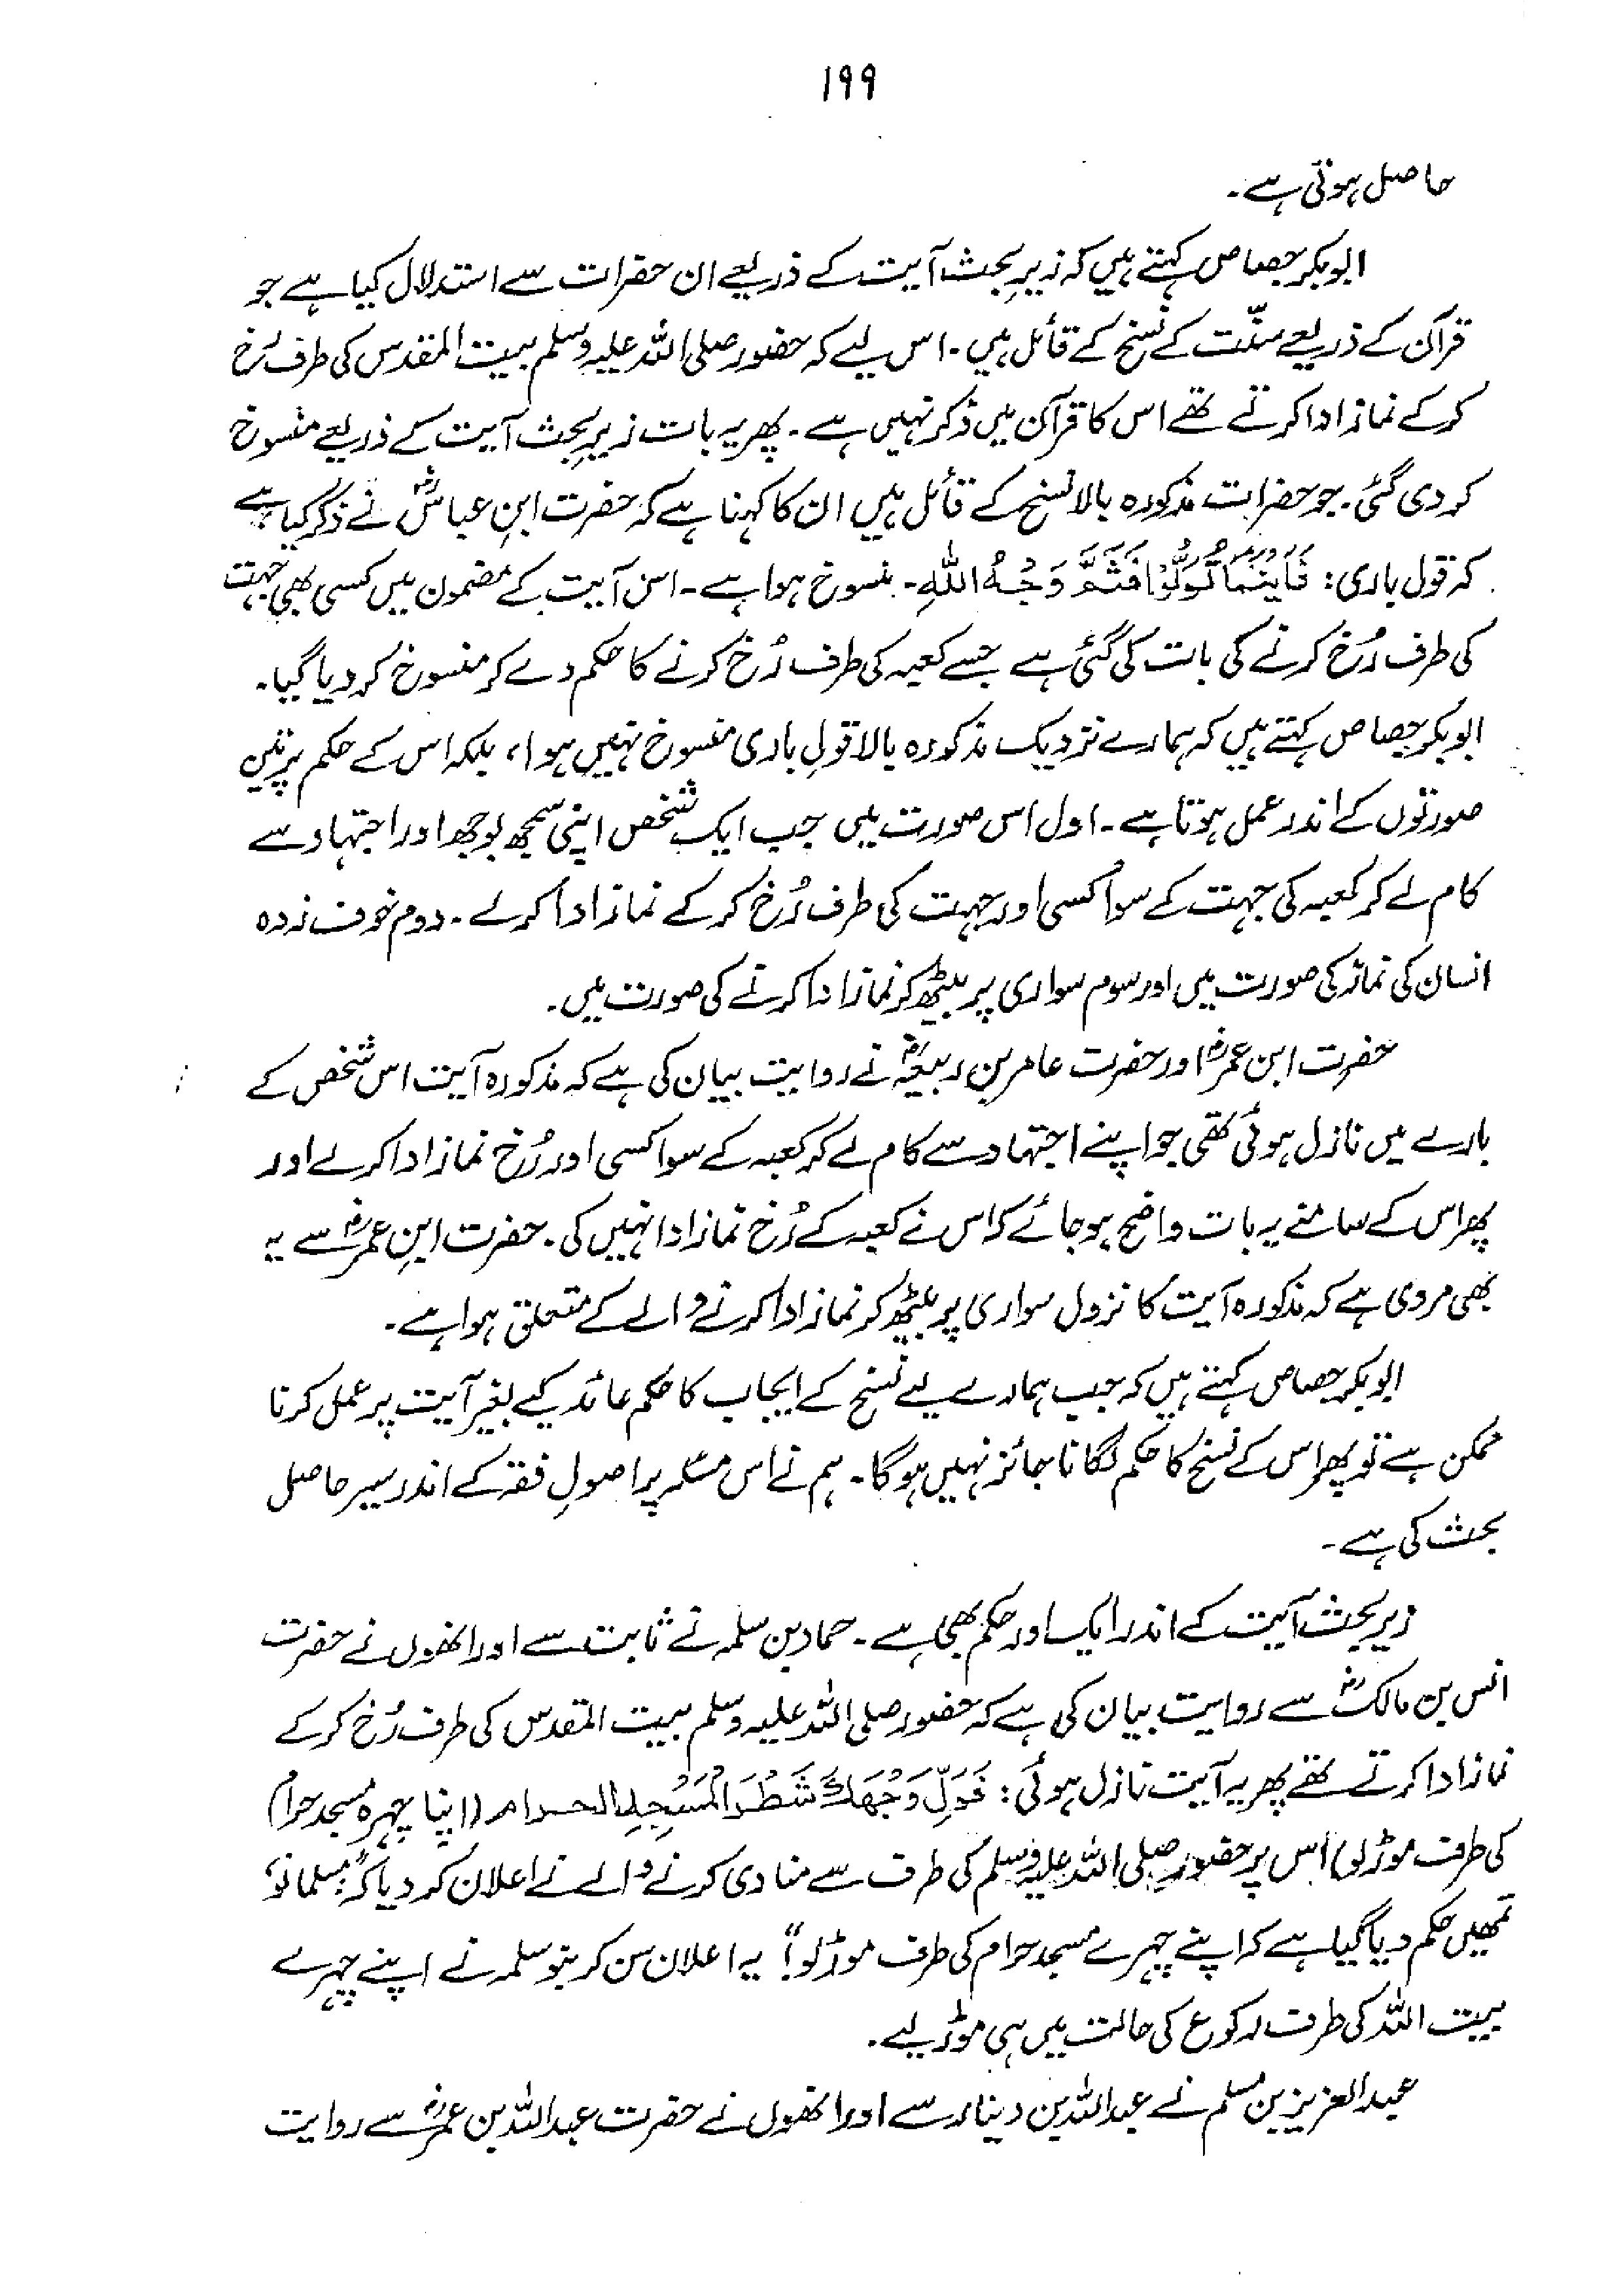 ۱۹۹
حاصل ہوتی ہے۔
ابوبکر جصاص کہتے ہیں کہ زیرِ بحث آیت کے ذریعے ان حضرات سے استدلال کیا ہے جو
قرآن کے ذریعے سنّت کے نسخ کے قائل ہیں۔ اس لیے کہ حضور صلی اللہ علیہ وسلم بیت المقدس کی طرف رُخ
کر کے نماز ادا کرتے تھے اس کا قرآن میں ذکر نہیں ہے۔ پھر یہ بات زیرِ بحث آیت کے ذریعے منسوخ
کر دی گئی۔ جو حضرات مذکورہ بالا نسخ کے قائل ہیں ان کا کہنا ہے کہ حضرت ابنِ عباسؓ نے ذکر کیا ہے
کہ قول باری: فَاَيْنَمَا تُوَلُّوْا فَثَمَّ وَجْهُ اللّٰهِ۔ منسوخ ہوا ہے۔ اس آیت کے مضمون میں کسی بھی جہت
کی طرف رُخ کرنے کی بات کی گئی ہے جسے کعبہ کی طرف رُخ کرنے کا حکم دے کر منسوخ کر دیا گیا۔
ابوبکر جصاص کہتے ہیں کہ ہمارے نزدیک مذکورہ بالا قولِ باری منسوخ نہیں ہوا، بلکہ اس کے حکم پر تین
صورتوں کے اندر عمل ہوتا ہے۔ اول اس صورت میں جب ایک شخص اپنی سمجھ بوجھ اور اجتہاد سے
کام لے کر کعبہ کی جہت کے سوا کسی اور جہت کی طرف رُخ کر کے نماز ادا کرلے۔ دوم خوف زدہ
انسان کی نماز کی صورت میں اور سوم سواری پر بیٹھ کر نماز ادا کرنے کی صورت میں۔
حضرت ابن عمرؓ اور حضرت عامر بن ربیعہؓ نے روایت بیان کی ہے کہ مذکورہ آیت اس شخص کے
بارے میں نازل ہوئی تھی جو اپنے اجتہاد سے کام لے کر کعبہ کے سوا کسی اور رُخ نماز ادا کرلے اور
پھر اس کے سامنے یہ بات واضح ہو جائے کہ اس نے کعبہ کے رُخ نماز ادا نہیں کی۔ حضرت ابنِ عمرؓ سے یہ
بھی مروی ہے کہ مذکورہ آیت کا نزول سواری پر بیٹھ کر نماز ادا کرنے والے کے متعلق ہوا ہے۔
ابوبکر جصاص کہتے ہیں کہ جب ہمارے لیے نسخ کے ایجاب کا حکم عائد کیے بغیر آیت پر عمل کرنا
ممکن ہے تو پھر اس کے نسخ کا حکم لگانا جائز نہیں ہوگا۔ ہم نے اس مسئلہ پر اصولِ فقہ کے اندر سیر حاصل
بحث کی ہے۔
زیر بحث آیت کے اندر ایک اور حکم بھی ہے۔ حماد بن سلمہ نے ثابت سے اور انھوں نے حضرت
انس بن مالکؓ سے روایت بیان کی ہے کہ حضور صلی اللہ علیہ وسلم بیت المقدس کی طرف رُخ کر کے
نماز ادا کرتے تھے پھر یہ آیت نازل ہوئی: فَوَلِّ وَجْهَكَ شَطْرَ الْمَسْجِدِ الحرام (اپنا چہرہ مسجد حرام)
کی طرف موڑ لو) اس پر حضور صلی اللہ علیہ وسلم کی طرف سے منادی کرنے والے نے اعلان کر دیا کہ "مسلمانو!
تمھیں حکم دیا گیا ہے کہ اپنے چہرے مسجد حرام کی طرف موڑ لو"! یہ اعلان سن کر بنو سلمہ نے اپنے چہرے
بیت اللہ کی طرف رکوع کی حالت میں ہی موڑ لیے۔
عبدالعزیز بن مسلم نے عبداللہ بن دینار سے اور انھوں نے حضرت عبداللہ بن عمرؓ سے روایت